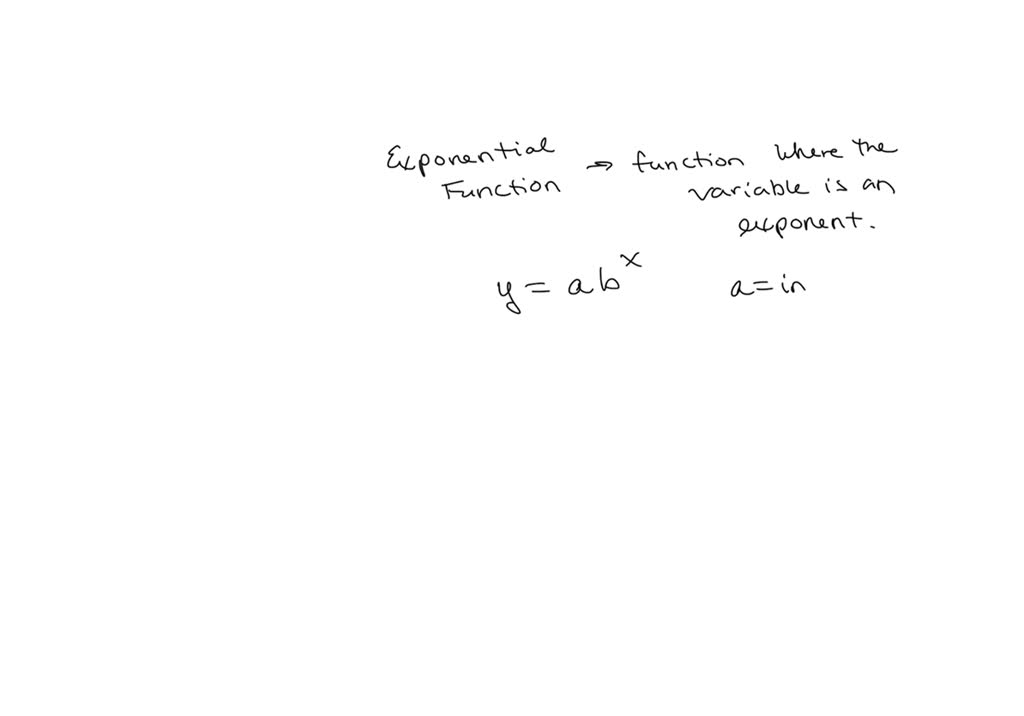 Exponential → function where the
Function variable is an
exponent.
y = ab^x a = in